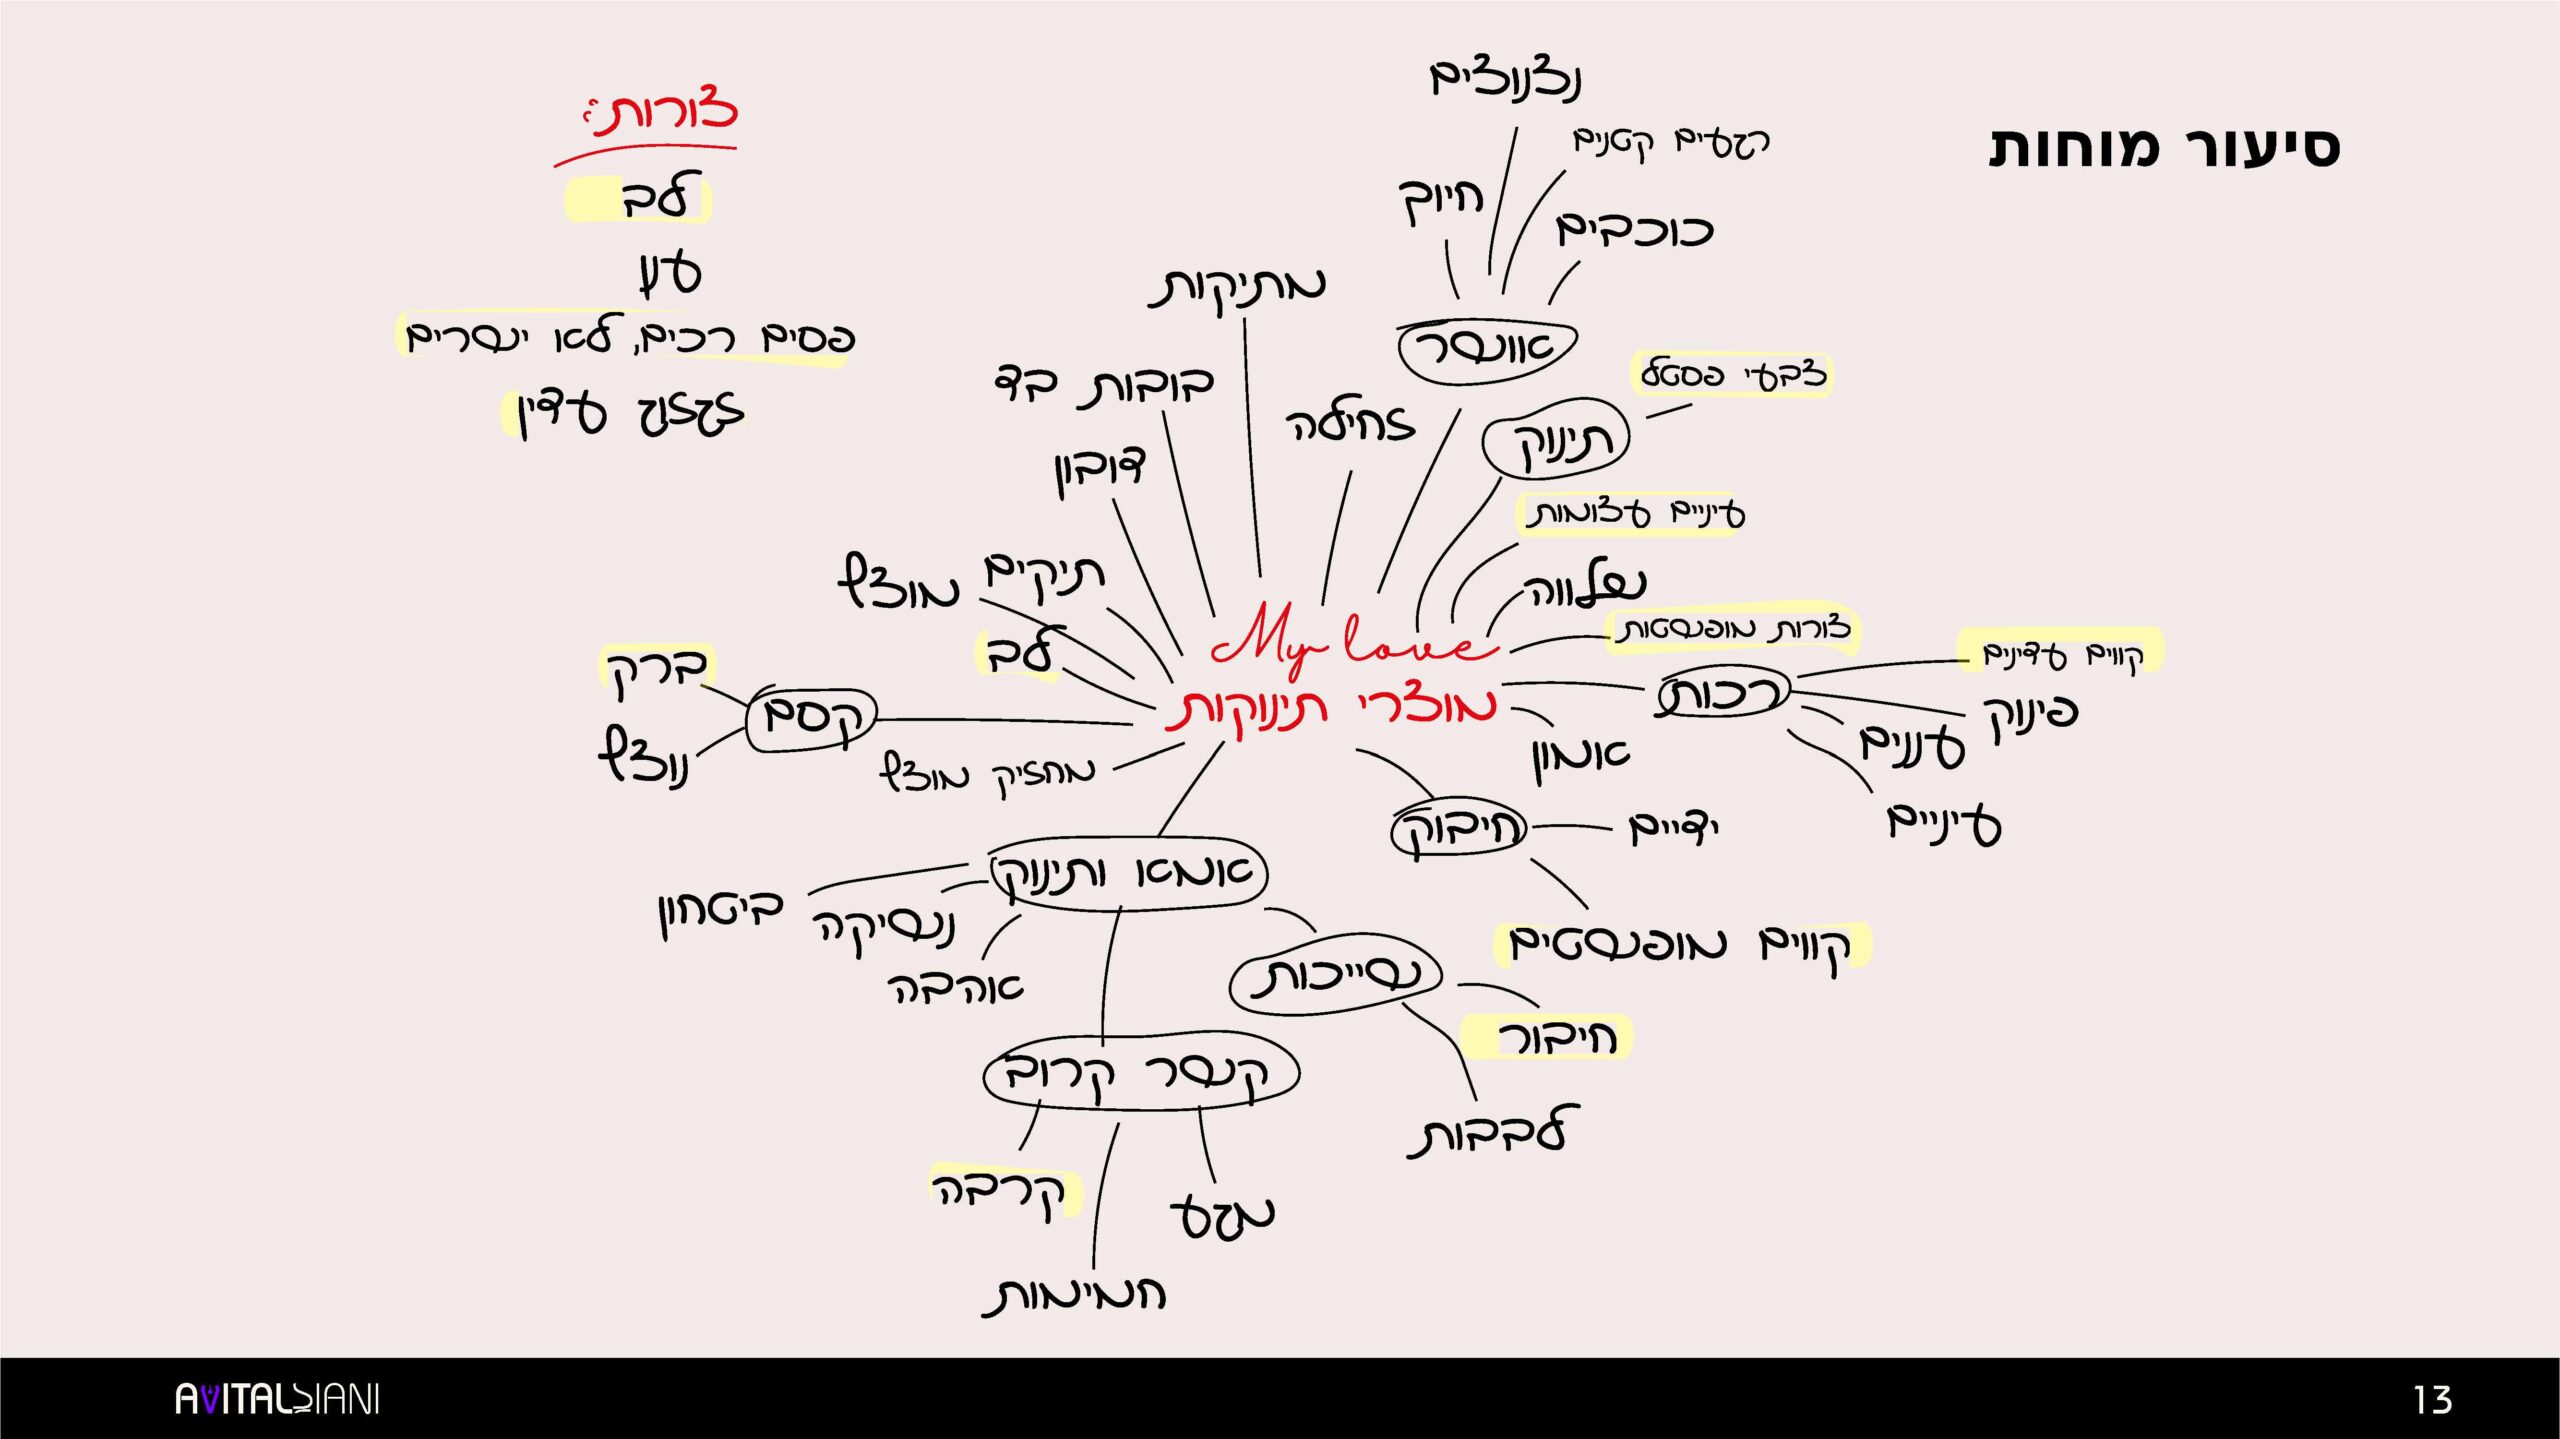 סיעור מוחות
נצנוצים
רגעים קטנים
חיוך
כוכבים
אוושר
צבעי פסטל
תינוק
עיניים עצומות
שלווה
צורות מופשטות
קווים עדינים
רכות
פינוק
עננים
עיניים
אמון
מתיקות
זחילה
בובות בד
דובון
תיקים
מוצץ
לב
My love
מוצרי תינוקות
ברק
קסם
נוצץ
מחזיק מוצץ
חיבוק
ידיים
קווים מופשטים
אמא ותינוק
ביטחון
נשיקה
אהבה
שייכות
חיבור
לבבות
קשר קרוב
קרבה
מגע
חמימות
צורות:
לב
ענן
פסים רכים, לא ישרים
זגזוג עדין
AVITALSIANI
13